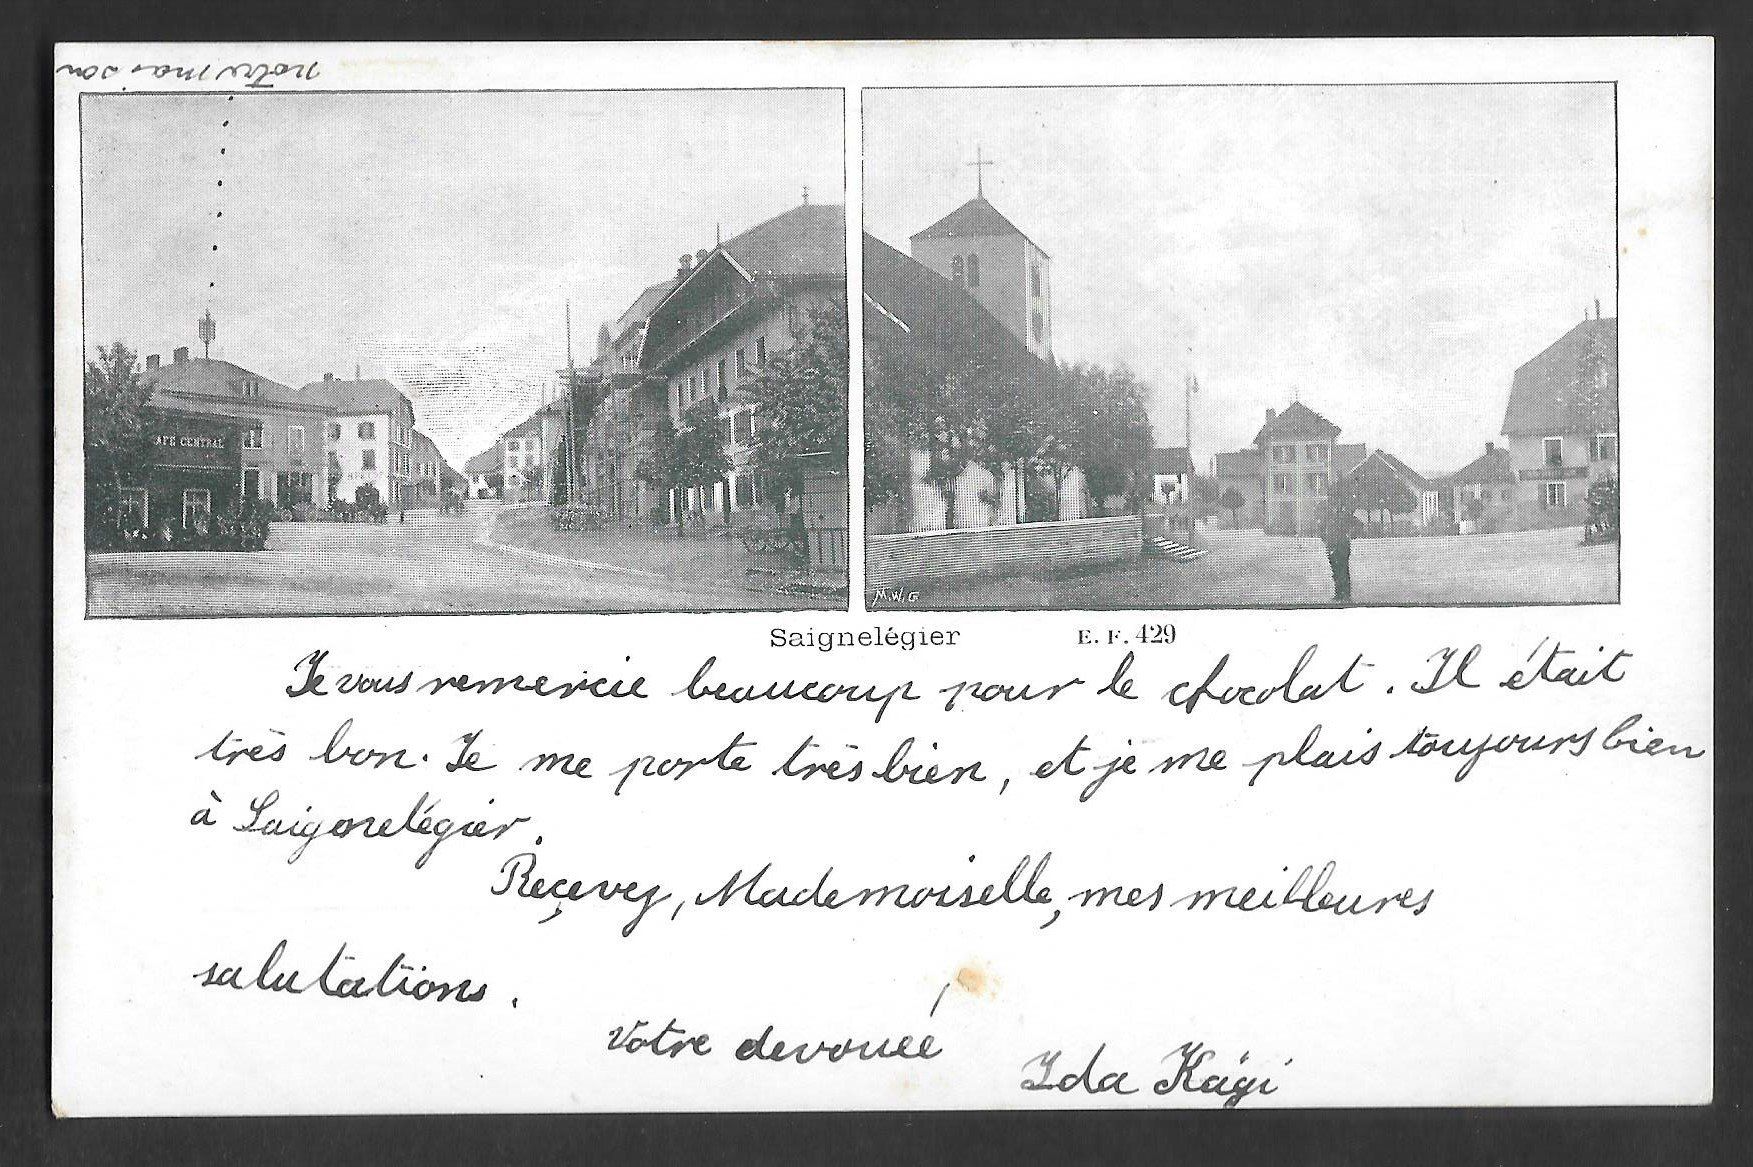 notre maison
AFÉ CENTRAL
M.W.G.
Saignelégier E. F. 429
Je vous remercie beaucoup pour le chocolat. Il était
très bon. Je me porte très bien, et je me plais toujours bien
à Saignelégier.
Reçevez, Mademoiselle, mes meilleures
salutations.
Votre devouée
Ida Kägi